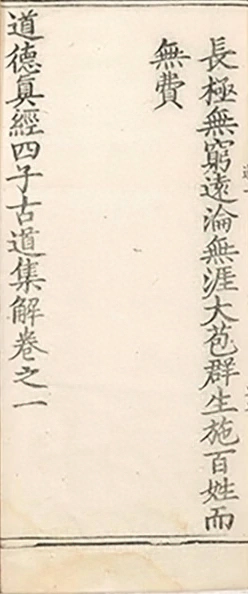 長極無窮遠淪無涯大苞群生施百姓而
無費
道德真經四子古道集解卷之一